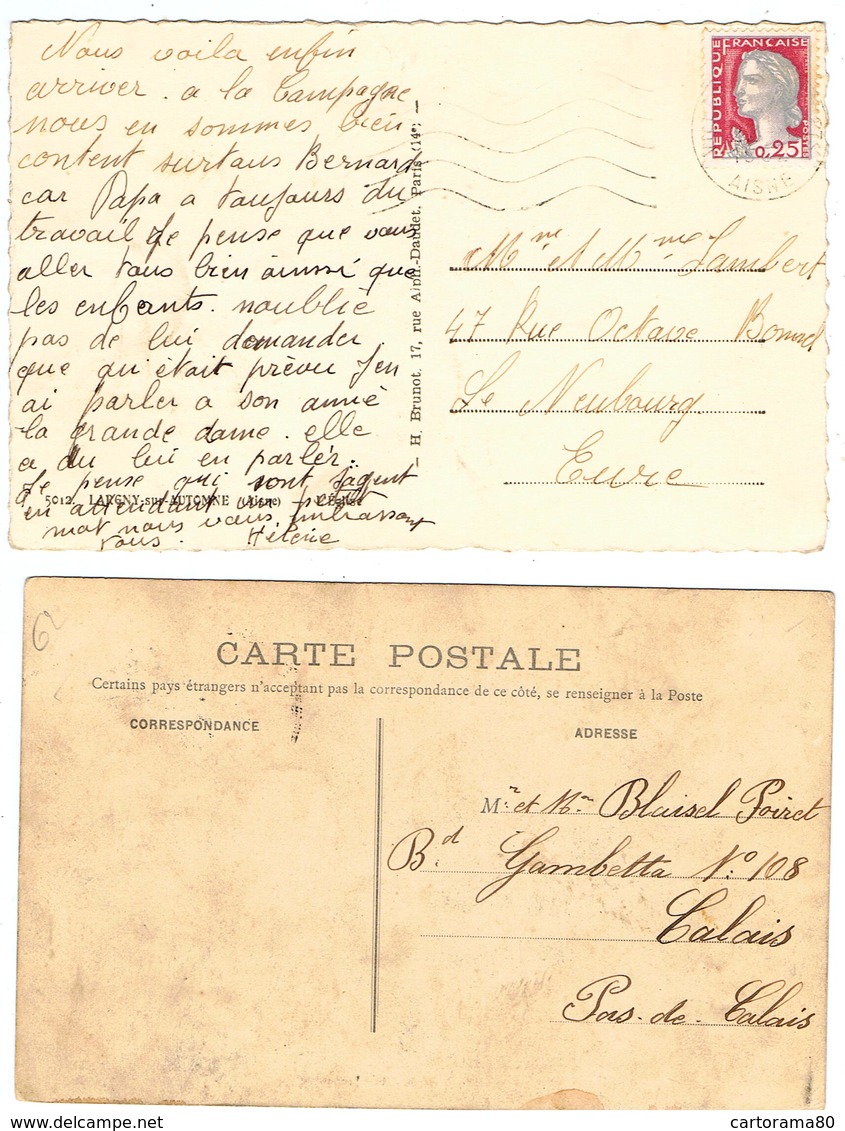 Nous voila enfin
arriver. a la Campagne
nous en sommes bien
content surtaus Bernard
car Papa a toujours du
travail Je pense que vous
aller tous bien ainssi que
les enfants. noublie
pas de lui demander
que qu'était prévu J'en
ai parler a son amie
la grande dame. elle
a du lui en parlér.
Je pense qui sont
en attendant un petit
mot nous vous embrassont
tous. Hélène
5012. LARGNY-sur-AUTOMNE (Aisne) — L'Église
— H. Brunot, 17, rue Alph.-Daudet, Paris (14e) —
RÉPUBLIQUE FRANÇAISE
0,25
POSTES
AISNE
Mme et Mme Lambert
47 Rue Octave Bonnel
Le Neubourg
Eure
62
CARTE POSTALE
Certains pays étrangers n'acceptant pas la correspondance de ce côté, se renseigner à la Poste
CORRESPONDANCE
ADRESSE
Mr et Mme Blaisel Poiret
Bd Gambetta N° 108
Calais
Pas-de-Calais
cartorama80